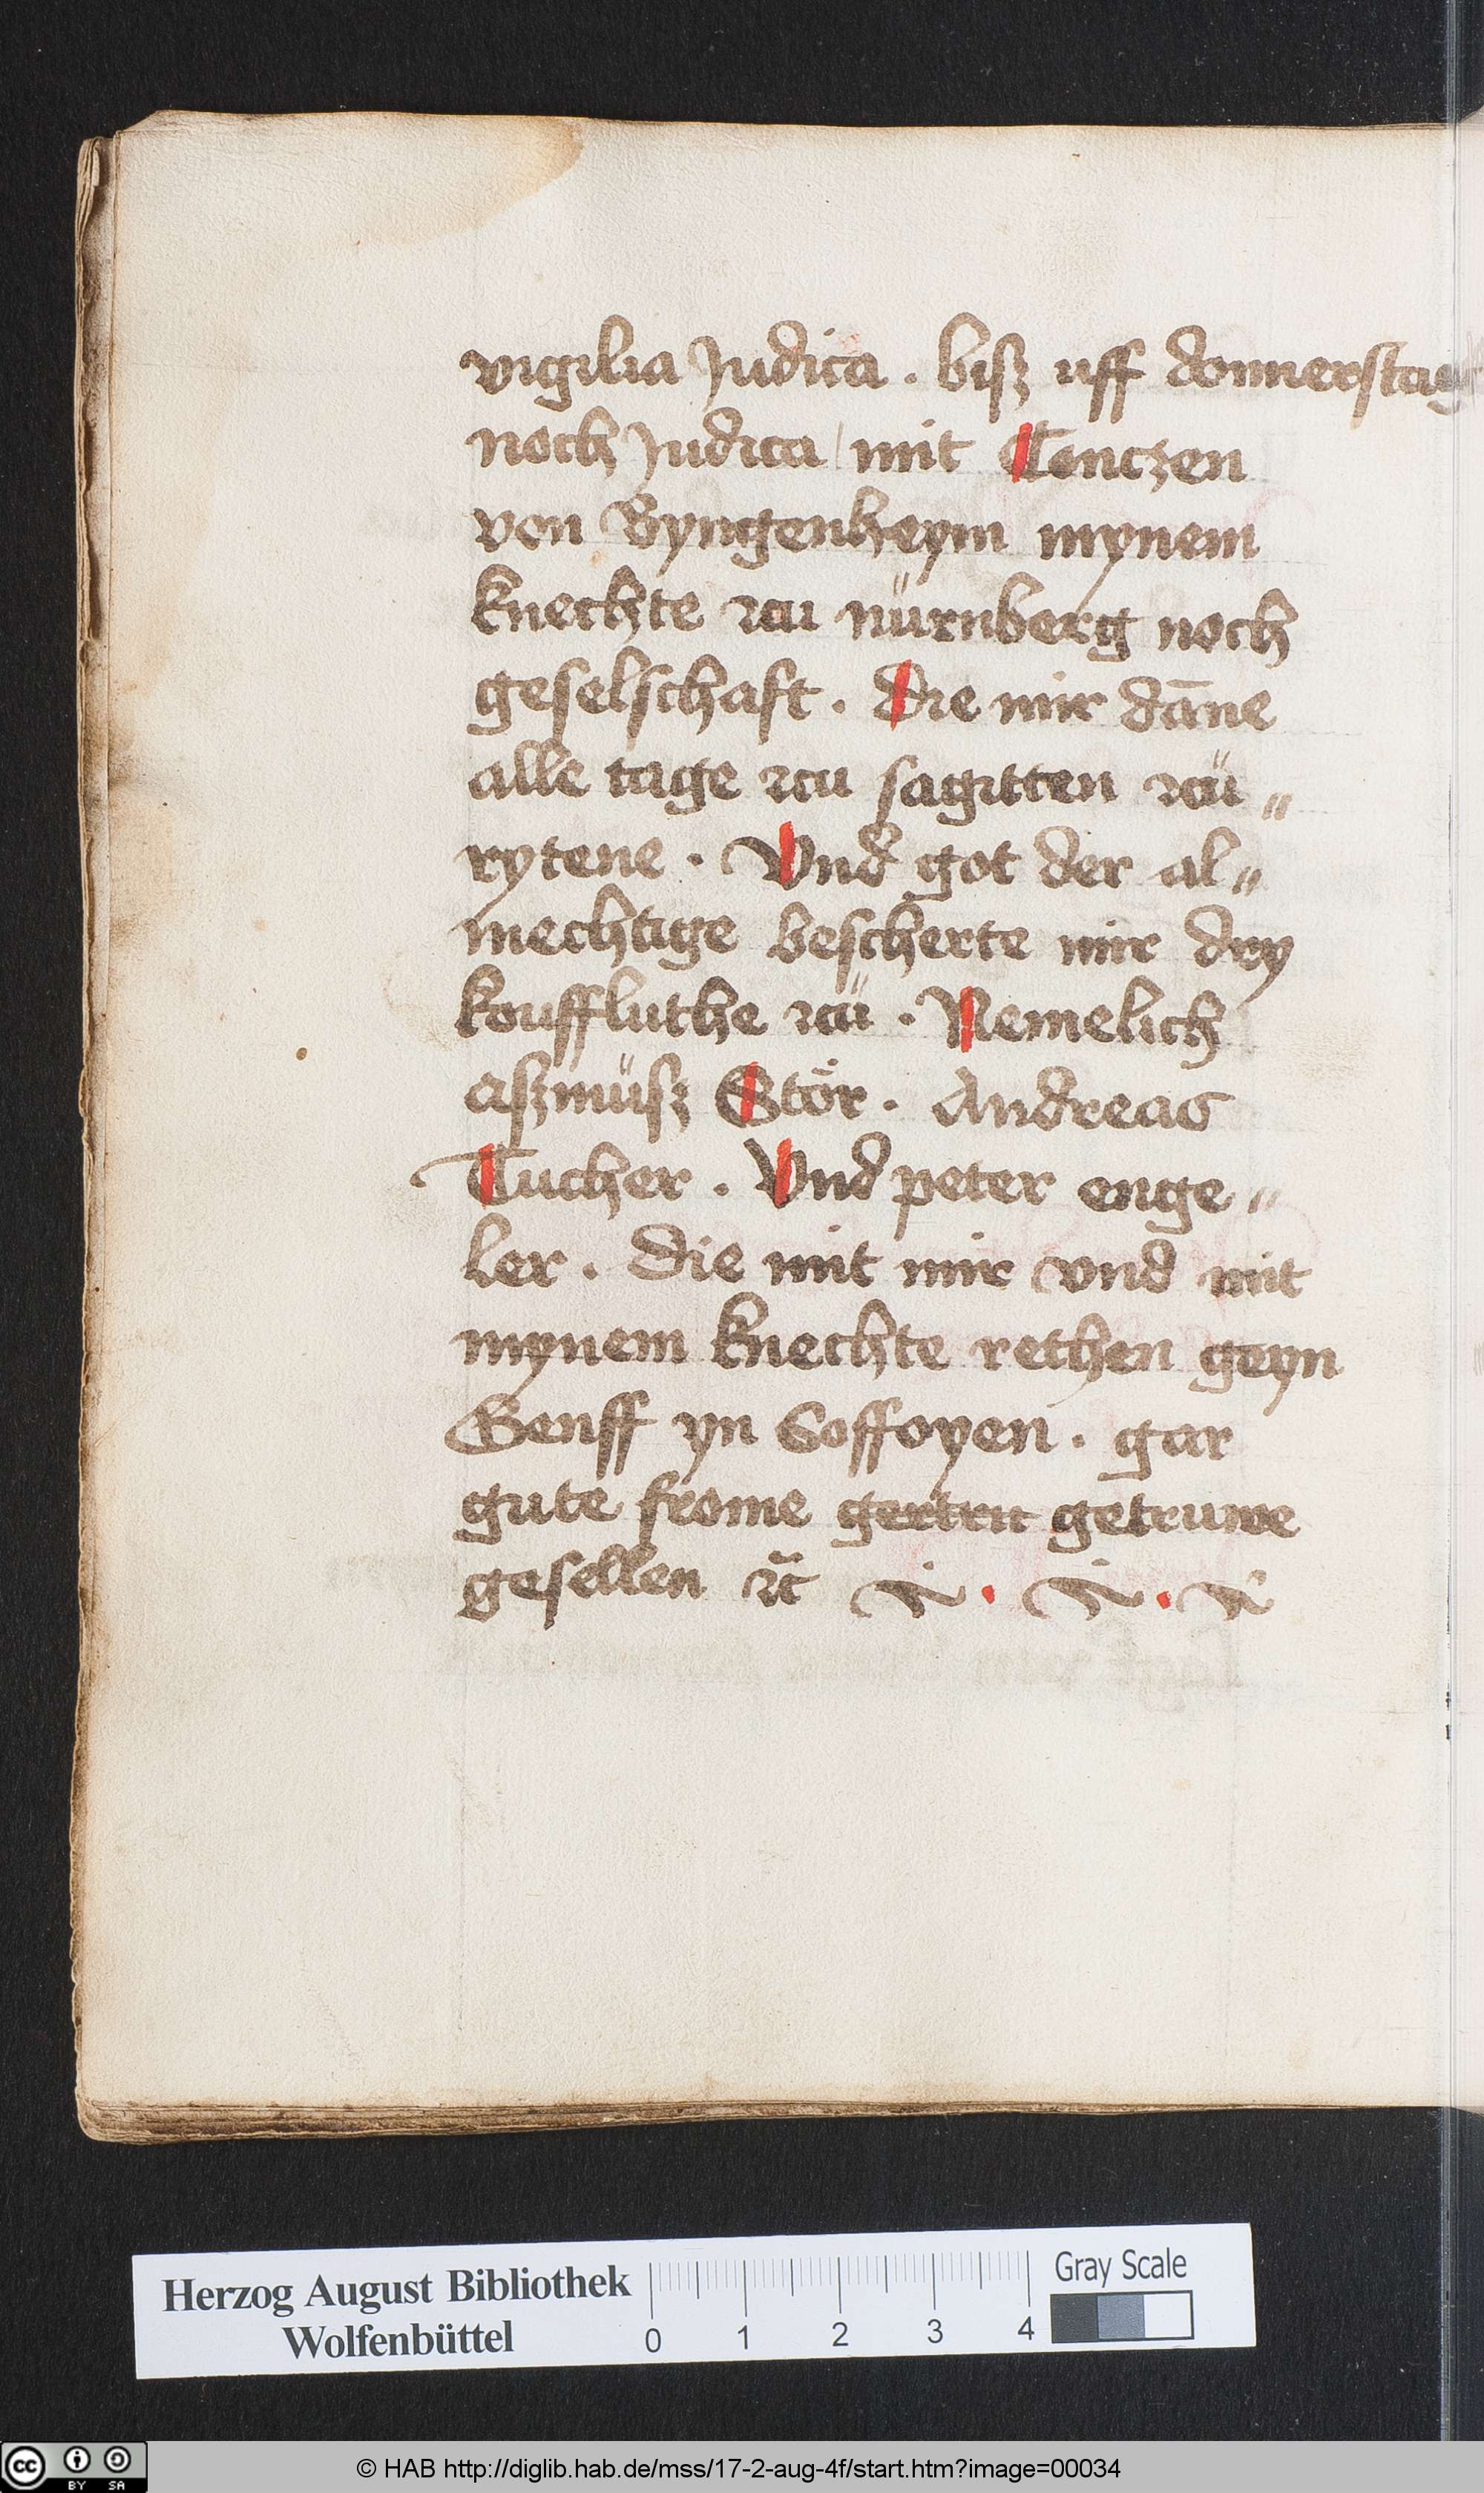 vigilia Judica . bisz uff donnerstag
noch Judica / mit Conczen
von Byngenheym mynem
knechte zcu nürnberg noch
geselschaft . Die mir dāne
alle tage zcu sagitten zcü „
rytene . Vnd got der al„
mechtige bescherte mir dry
kouffluthe zcü . Nemelich
aszmüsz Stör . Andreas
Tucher . Vnd peter enge „
ler . Die mit mir vnd mit
mynem knechte rethen geyn
Genff yn Soffoyen . gar
gute frome gertru getruwe
gesellen
Herzog August Bibliothek
Wolfenbüttel
0 1 2 3 4
Gray Scale
cc BY SA
© HAB http://diglib.hab.de/mss/17-2-aug-4f/start.htm?image=00034